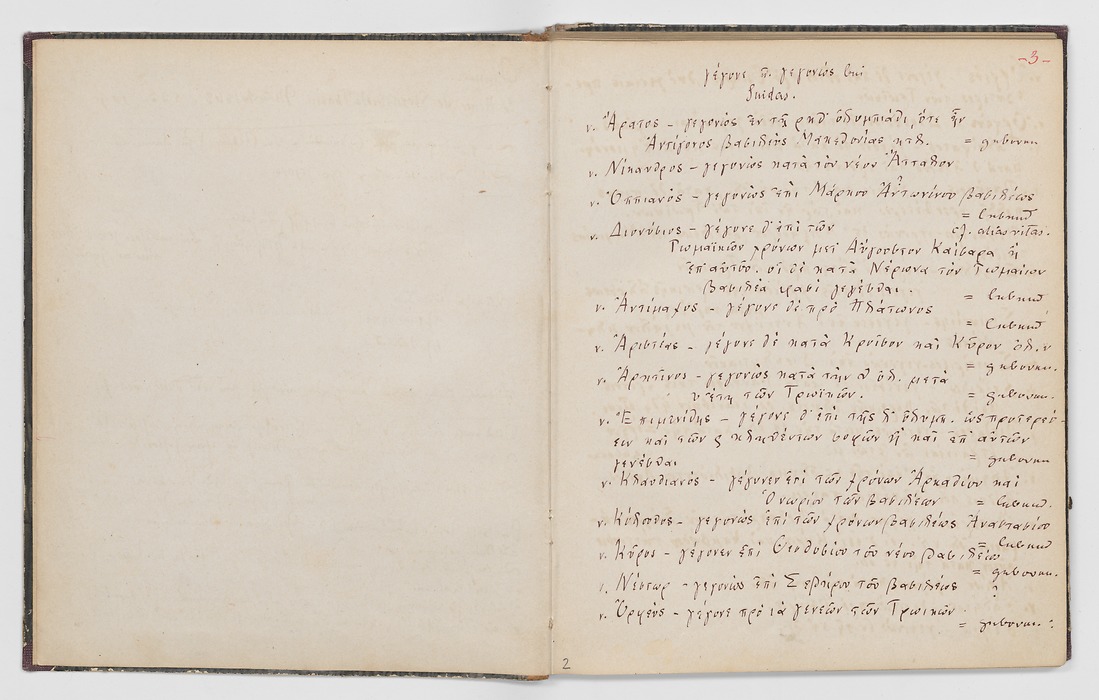 -3-
γέγονε u. γεγονώς bei
Suidas.
v. Ἄρατος – γεγονὼς ἐν τῇ ρκδʹ ὀλυμπιάδι, ὅτε ἦν
Ἀντίγονος βασιλεὺς Μακεδονίας κτλ. = geboren
v. Νίκανδρος – γεγονὼς κατὰ τὸν νέον Ἄτταλον
v. Ὀππιανός – γεγονὼς ἐπὶ Μάρκου Ἀντωνίνου βασιλέως
= lebend
v. Διονύσιος – γέγονε δ' ἐπὶ τῶν cf. alias vitas.
Ῥωμαϊκῶν χρόνων μετ' Αὔγουστον Καίσαρα ἢ
ἐπ' αὐτοῦ. οἱ δὲ κατὰ Νέρωνα τὸν Ῥωμαίων
βασιλέα φασὶ γεγέσθαι. = lebend
v. Ἀντίμαχος – γέγονε δὲ πρὸ Πλάτωνος
= lebend
v. Ἀριστέας – γέγονε δὲ κατὰ Κροῖσον καὶ Κῦρον ὀλ. ν
= geboren.
v. Ἀρκτῖνος – γεγονὼς κατὰ τὴν θʹ ὀλ. μετὰ
υ ἔτη τῶν Τρωϊκῶν. = geboren.
v. Ἐπιμενίδης – γέγονε δ' ἐπὶ τῆς λʹ ὀλυμπ. ὡς προτερεύ-
ειν καὶ τῶν ζ κληθέντων σοφῶν ἢ καὶ ἐπ' αὐτῶν
γενέσθαι = geboren
v. Κλαυδιανός – γέγονεν ἐπὶ τῶν χρόνων Ἀρκαδίου καὶ
Ὁνωρίου τῶν βασιλέων = lebend.
v. Κόλουθος – γεγονὼς ἐπὶ τῶν χρόνων βασιλέως Ἀναστασίου
= lebend
v. Κῦρος – γέγονεν ἐπὶ Θεοδοσίου τοῦ νέου βασιλέως
= geboren.
v. Νέστωρ – γεγονὼς ἐπὶ Σεβήρου τοῦ βασιλέως ?
v. Ὀρφεύς – γέγονε πρὸ ιὰ γενεῶν τῶν Τρωικῶν.
= geboren. ?
2